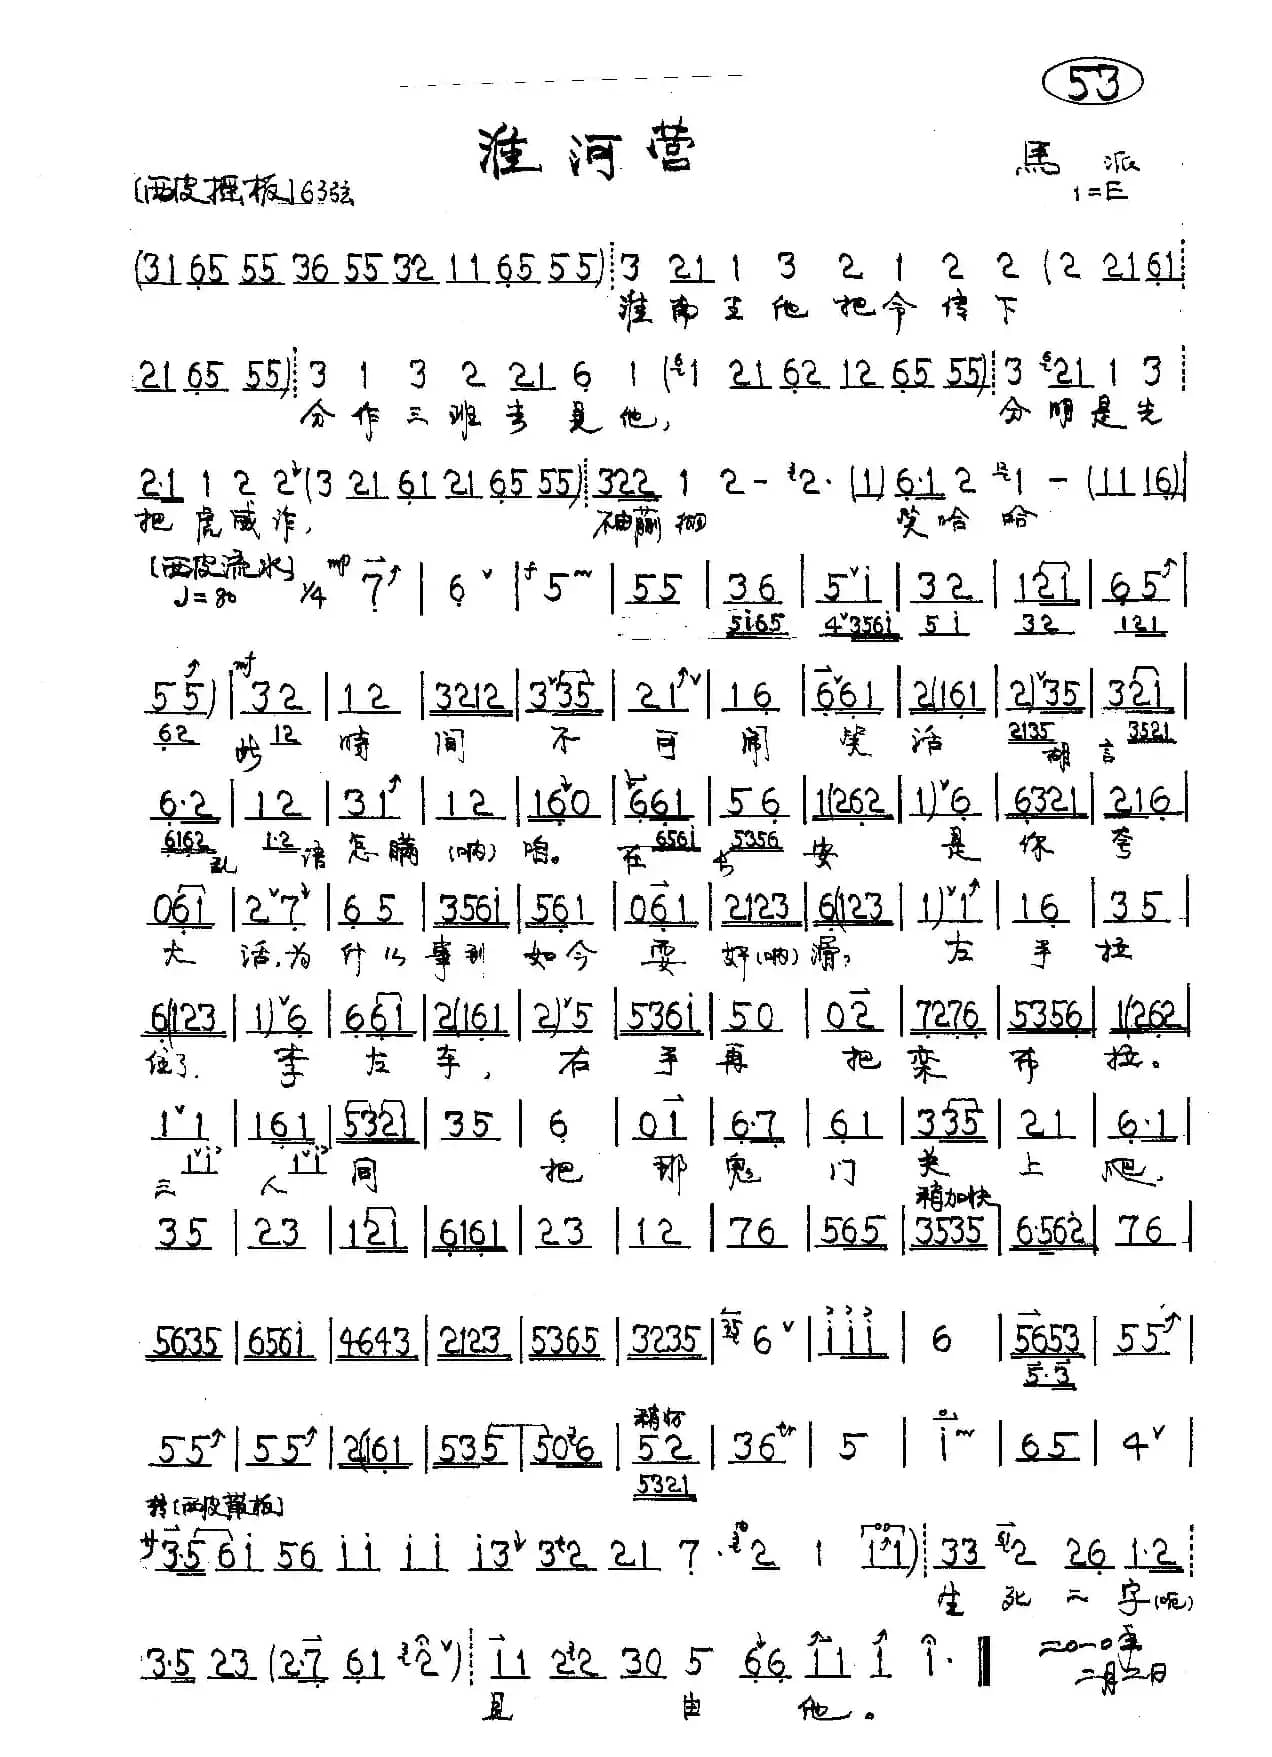 53
淮河营
馬派
[西皮摇板]63弦
1=E
(31 65 55 36 55 32 11 65 55) 3 21 1 3 2 1 2 2 (2 21 61
淮南王他把令传下
21 65 55) 3 1 3 2 21 6 1 ( 1 21 62 12 65 55) 3 21 1 3
分作三班去見他, 分明是先
2·1 1 2 2 (3 21 61 21 65 55) 322 1 2 - 2· (1) 6·1 2 1 - (11 16)
把虎威诈, 笑哈哈
[西皮流水]
♩=80 1/4 mp 7 | 6 | f 5 | 55 | 36 | 5 i | 32 | 121 | 65 |
5i65 4 356i 5i 32 121
55) | mf 32 | 12 | 3212 | 335 | 21 | 16 | 661 | 2(161 | 2) 35 | 321 |
62 12 2135 3521
此時间不可闹笑话 胡言
6·2 | 12 | 31 | 12 | 160 | 661 | 56 | 1(262 | 1) 6 | 6321 | 216 |
6162 1·2 656i 5356
乱语怎瞒(呐)咱。在长安是你夸
061 | 27 | 65 | 356i | 561 | 061 | 2123 | 6(123 | 1) 1 | 16 | 35 |
大话,为什么事到如今耍奸(呐)滑; 左手拉
6(123 | 1) 6 | 661 | 2(161 | 2) 5 | 536i | 50 | 02 | 7276 | 5356 | 1(262 |
住了李左车,右手再把栾布拉。
1 1 | 161 | 5321 | 35 | 6 | 01 | 6·7 | 61 | 335 | 21 | 6·1 |
三人同把那鬼门关上爬,
稍加快
35 | 23 | 121 | 6161 | 23 | 12 | 76 | 565 | 3535 | 6·562 | 76
5635 | 656i | 4643 | 2123 | 5365 | 3235 | 35 6 | i i i | 6 | 5653 | 55 |
5·3
55 | 55 | 2(161 | 535 | 506 | 52 | 36 tr | 5 | i | 65 | 4 |
5321
サ 3·5 6i 56 ii ii i3 32 21 7· 2 1 11) 33 2 26 1·2
生死二字(呃)
3·5 23 (2·7 61 2) 11 22 30 5 66 11 1 1·
二〇一〇年
二月二日
且由他。